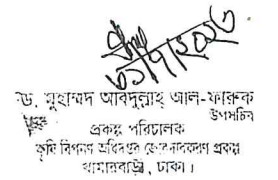 ড. মুহাম্মদ আবদুল্লাহ আল-ফারুক
উপসচিব
প্রকল্প পরিচালক
কৃষি বিপণন অধিদপ্তর জোরদারকরণ প্রকল্প
খামারবাড়ী, ঢাকা।